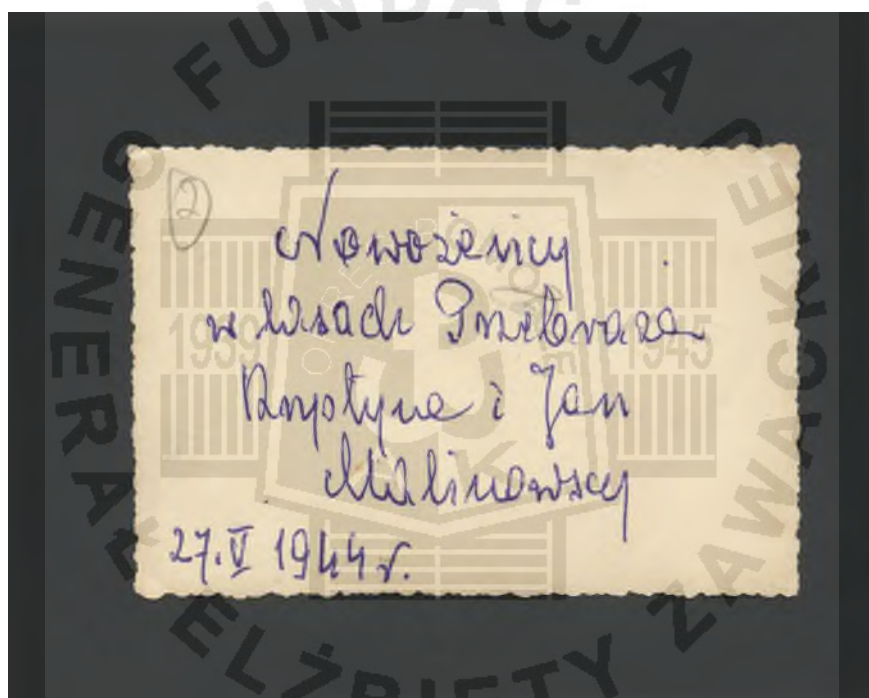 FUNDACJA GENERAŁ ELŻBIETY ZAWACKIEJ
1939 1945
AK
2
Nowożeńcy
w lasach Przebraża
Krystyna i Jan
Malinowscy
27.V 1944 r.